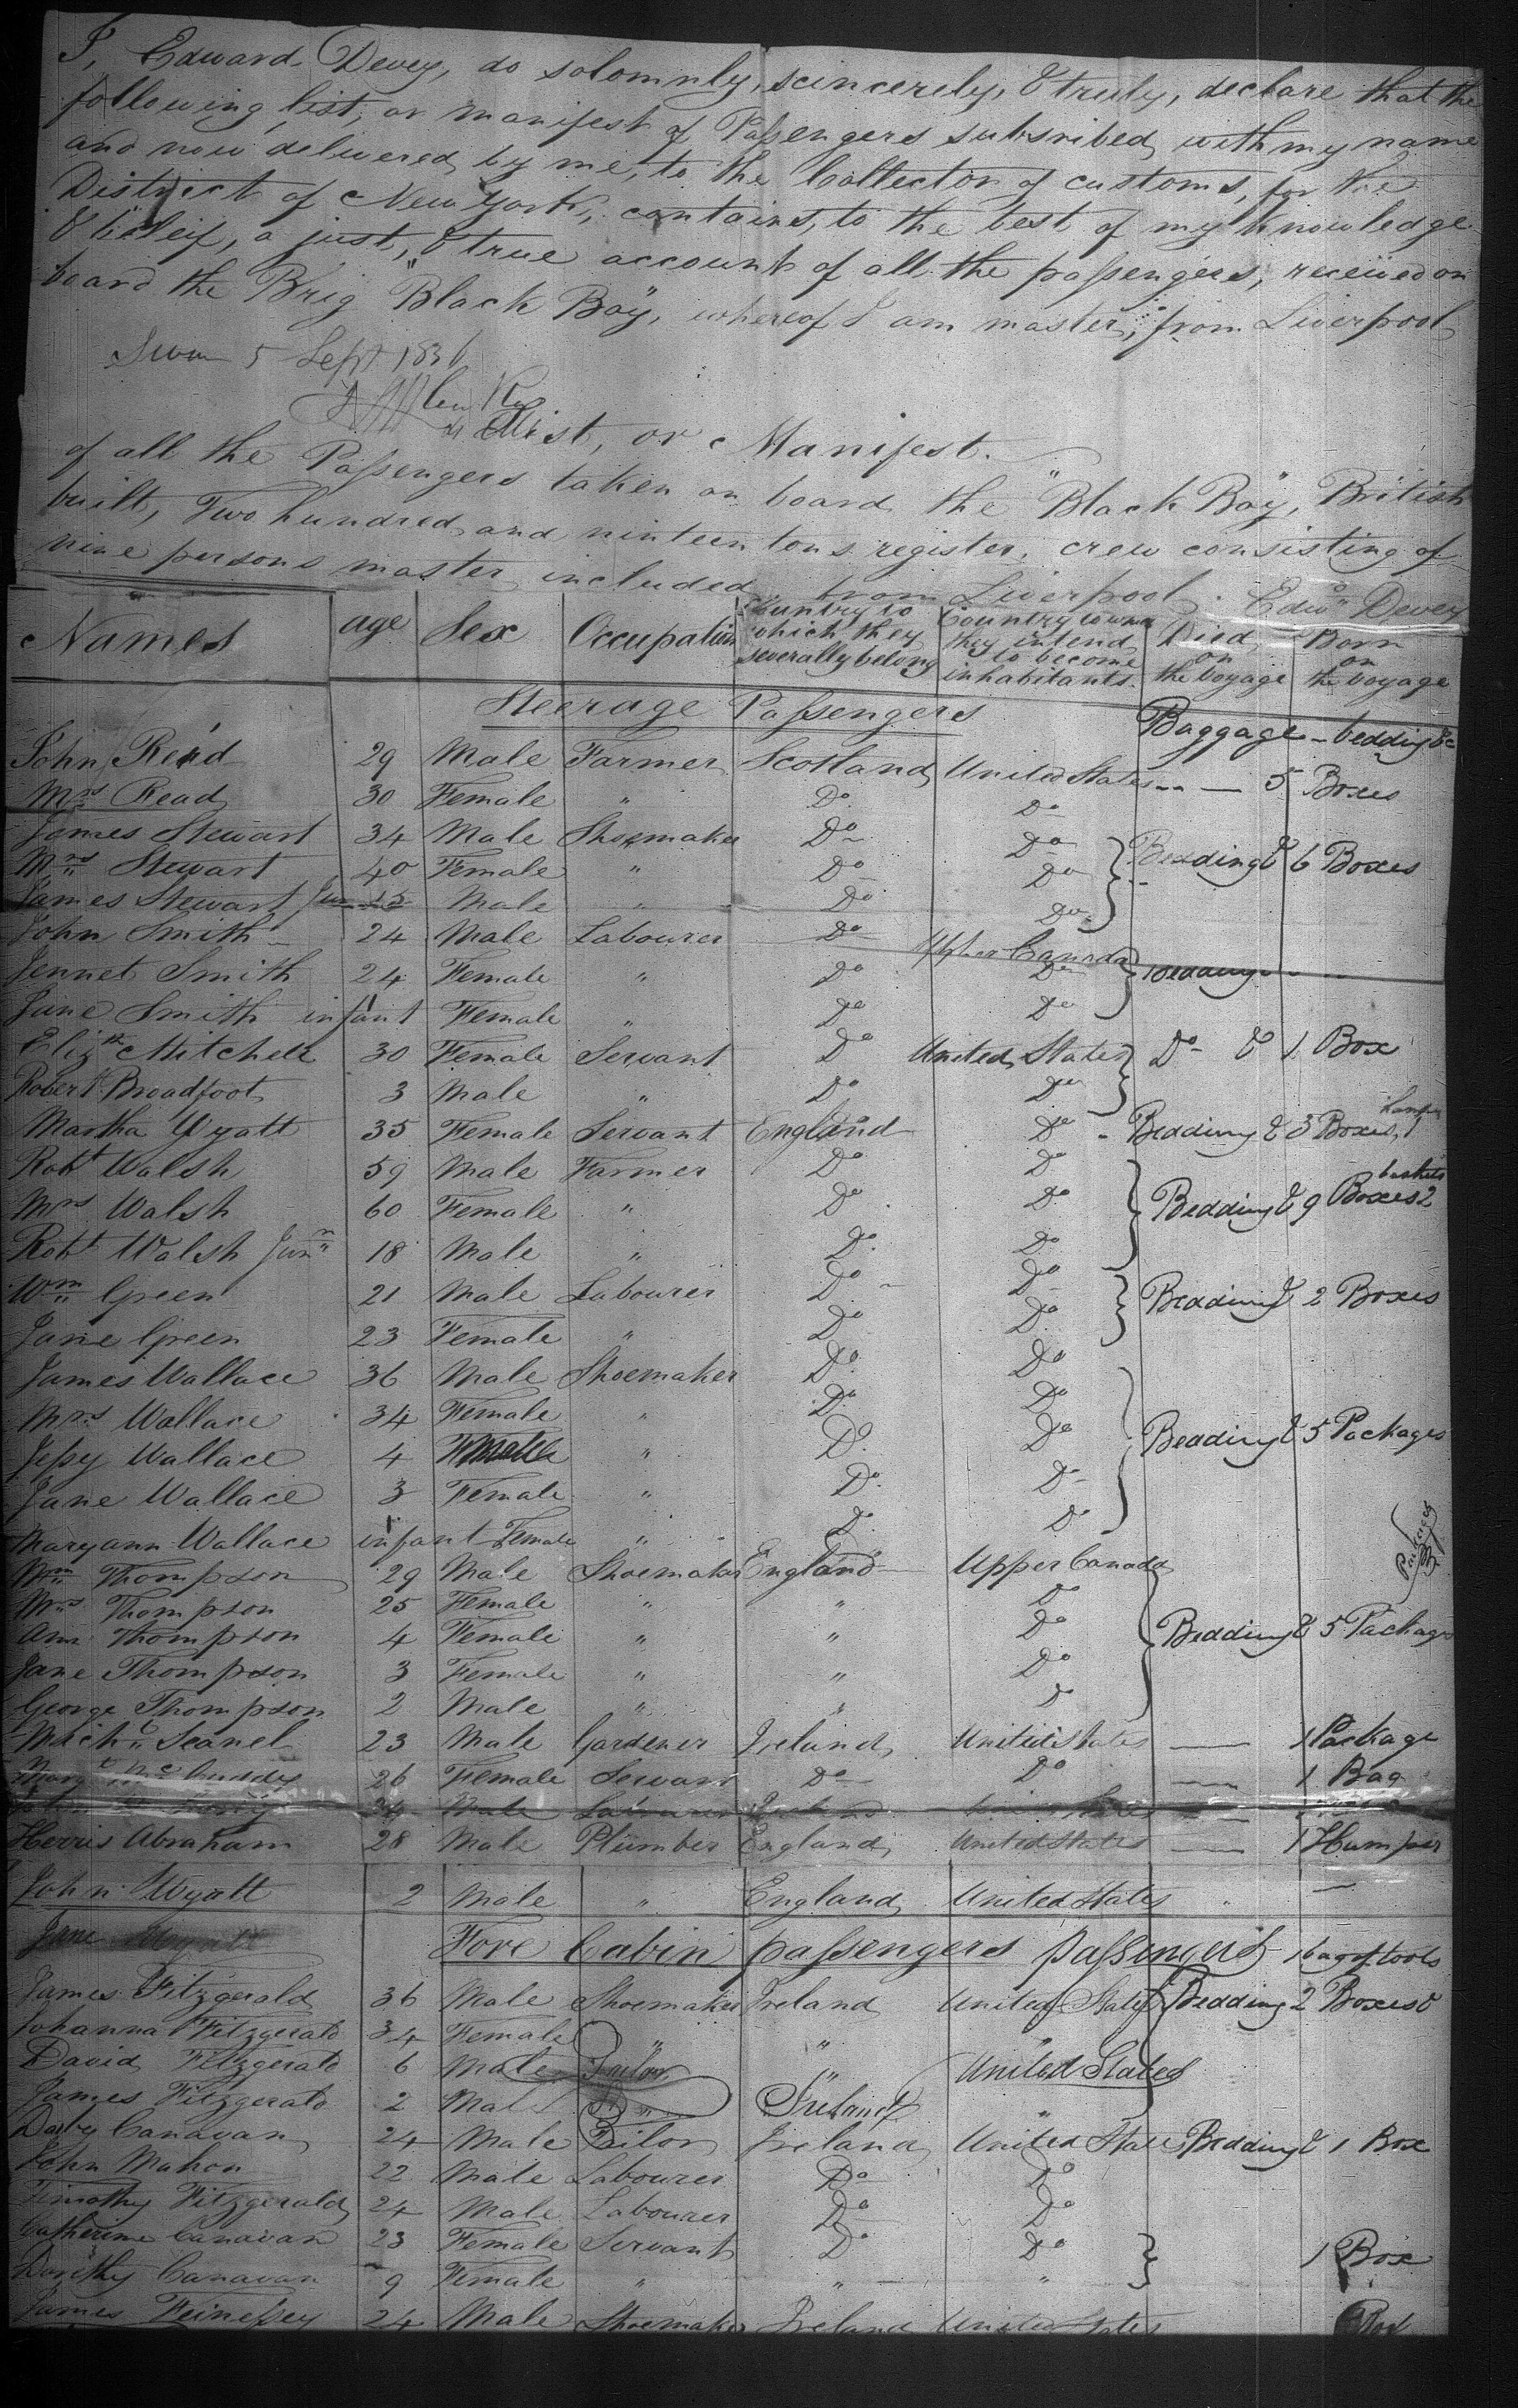 I, Edward Devey, do solomnly, scincerely, & truly, declare that the
following list, or manifest of Passengers subsribed with my name
and now delivered by me, to the Collector of customs, for the
District of New York, contains, to the best of my knowledge
& beleif, a just, & true account of all the passengers, received on
board the Brig "Black Boy", whereof I am master, from Liverpool
Sworn 5 Sept 1836
List, or Manifest.
of all the Passengers taken on board the "Black Boy", British
built, Two hundred and ninteen tons register. crew consisting of
nine persons master included from Liverpool. Edwd Devey
Names age Sex Occupation Country to which they severally belong Country they intend to become inhabitants. Died on the voyage Born on the voyage
Steerage Passengers Baggage - bedding &c
John Read 29 Male Farmer Scotland United States -- 5 Boxes
Mrs Read 30 Female " Do Do
James Stewart 34 Male Shoemaker Do Do
Mrs Stewart 40 Female " Do Do Bedding & 6 Boxes
James Stewart Jun 13 Male " Do Do
John Smith 24 Male Labourer Do Upper Canada
Jennet Smith 24 Female " Do Do Bedding
Jane Smith infant Female " Do Do
Elizth Mitchell 30 Female Servant Do United States Do & 1 Box
Robert Broadfoot 3 Male " Do Do
Martha Wyatt 35 Female Servant England Do Bedding & 3 Boxes, 1 hamper
Robt Walsh 59 Male Farmer Do Do
Mrs Walsh 60 Female " Do Do Bedding & 9 Boxes 2 baskets
Robt Walsh Junr 18 Male " Do Do
Wm Green 21 Male Labourer Do Do Bedding & 2 Boxes
Jane Green 23 Female " Do Do
James Wallace 36 Male Shoemaker Do Do
Mrs Wallace 34 Female " Do Do
Jessy Wallace 4 " Do Do Bedding & 5 Packages
Jane Wallace 3 Female " Do Do
Maryann Wallace infant Female " Do Do
Wm Thompson 29 Male Shoemaker England Upper Canada
Mrs Thompson 25 Female " " Do
Ann Thompson 4 Female " " Do Bedding & 5 Packages
Jane Thompson 3 Female " " Do
George Thompson 2 Male " " Do
Michl Scanel 23 Male Gardener Ireland United States 1 Package
Margt McCuddy 26 Female Servant Do Do 1 Bag
24 Male Labourer Ireland United States
Herris Abraham 28 Male Plumber England United States 1 Hamper
John Wyatt 2 Male " England United States
Jane Wyatt
Fore Cabin passengers passengers 1 bag of tools
James Fitzgerald 36 Male Shoemaker Ireland United States Bedding 2 Boxes &
Johanna Fitzgerald 34 Female " " "
David Fitzgerald 6 Male " United States
James Fitzgerald 2 Male " Ireland "
Darby Canavan 24 Male Tailor Ireland United States Bedding & 1 Box
John Mahon 22 Male Labourer Do Do
Timothy Fitzgerald 24 Male Labourer Do Do
Catherine Canavan 23 Female Servant Do Do 1 Box
Dorithy Canavan 9 Female " " "
James 24 Male Shoemaker Ireland United States Box